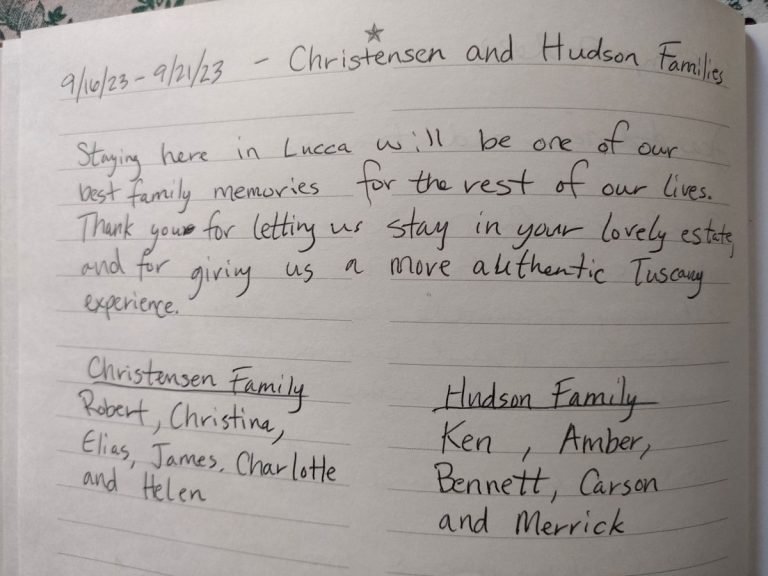 9/16/23 - 9/21/23 - Christensen and Hudson Families
Staying here in Lucca will be one of our
best family memories for the rest of our lives.
Thank you for letting us stay in your lovely estate,
and for giving us a more authentic Tuscany
experience.
Christensen Family
Robert, Christina,
Elias, James, Charlotte
and Helen
Hudson Family
Ken, Amber,
Bennett, Carson
and Merrick